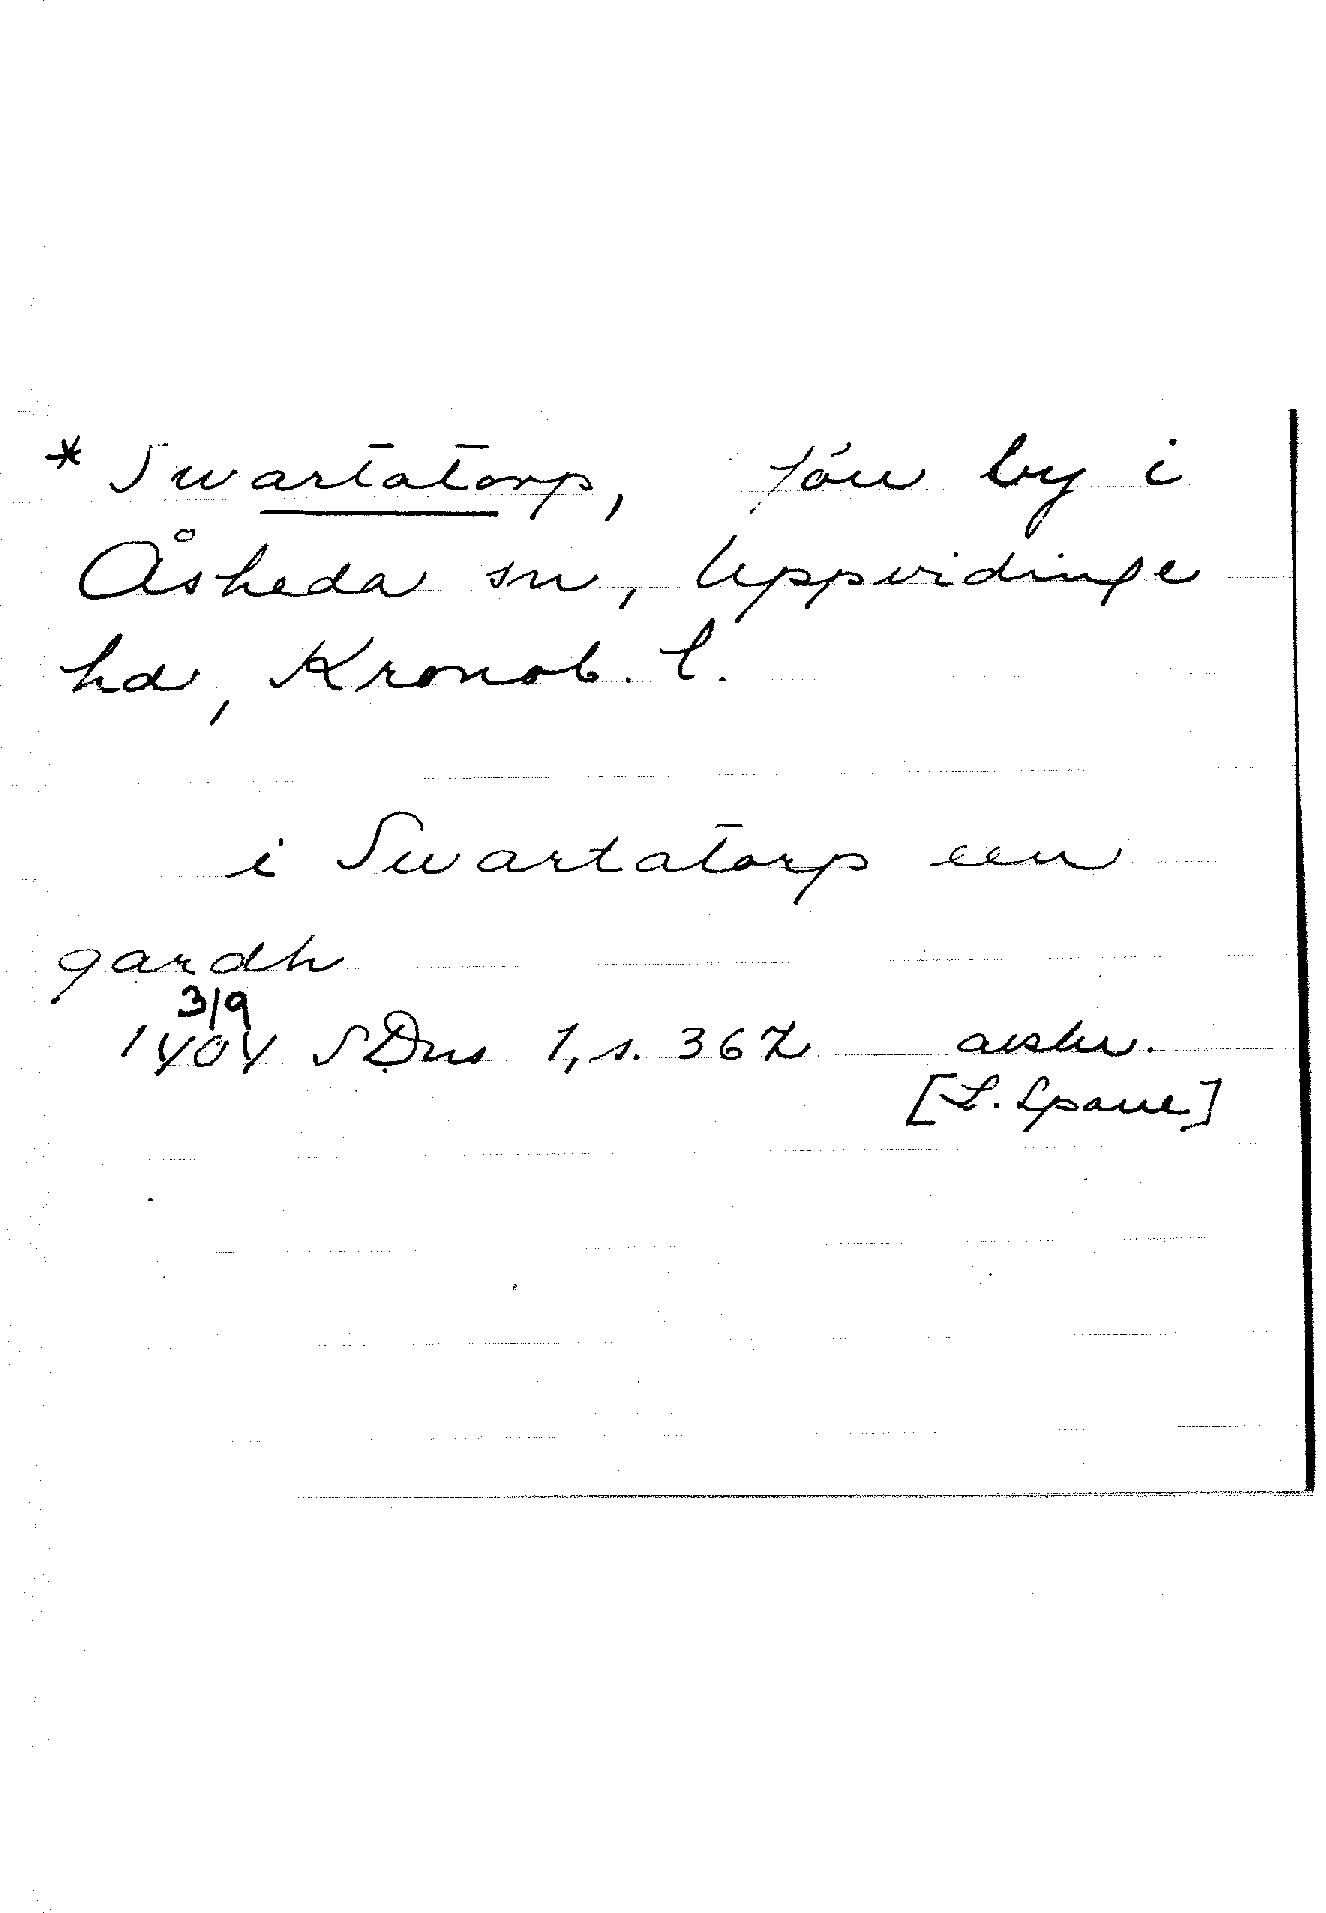 * Swartatorp, förv by i
Åsheda sn, Uppvidinge
hd, Kronob. l.
i Swartatorp een
gardh
3/9
1404 SDns 1, s. 362 avskr.
[L. Spane]